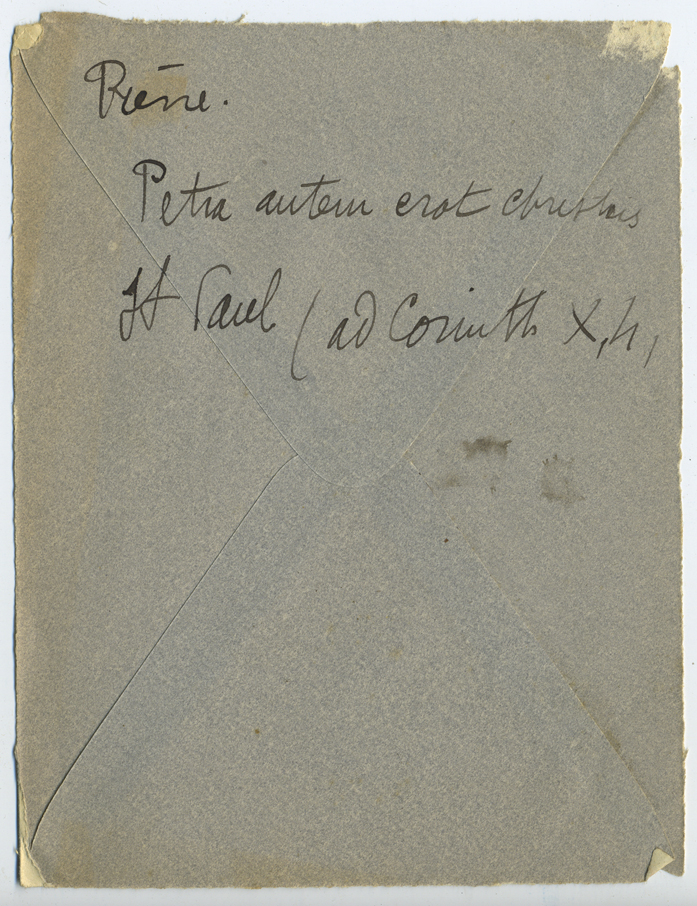 Pierre.
Petra autem erat christus
St Paul (ad Corinth X, 4,